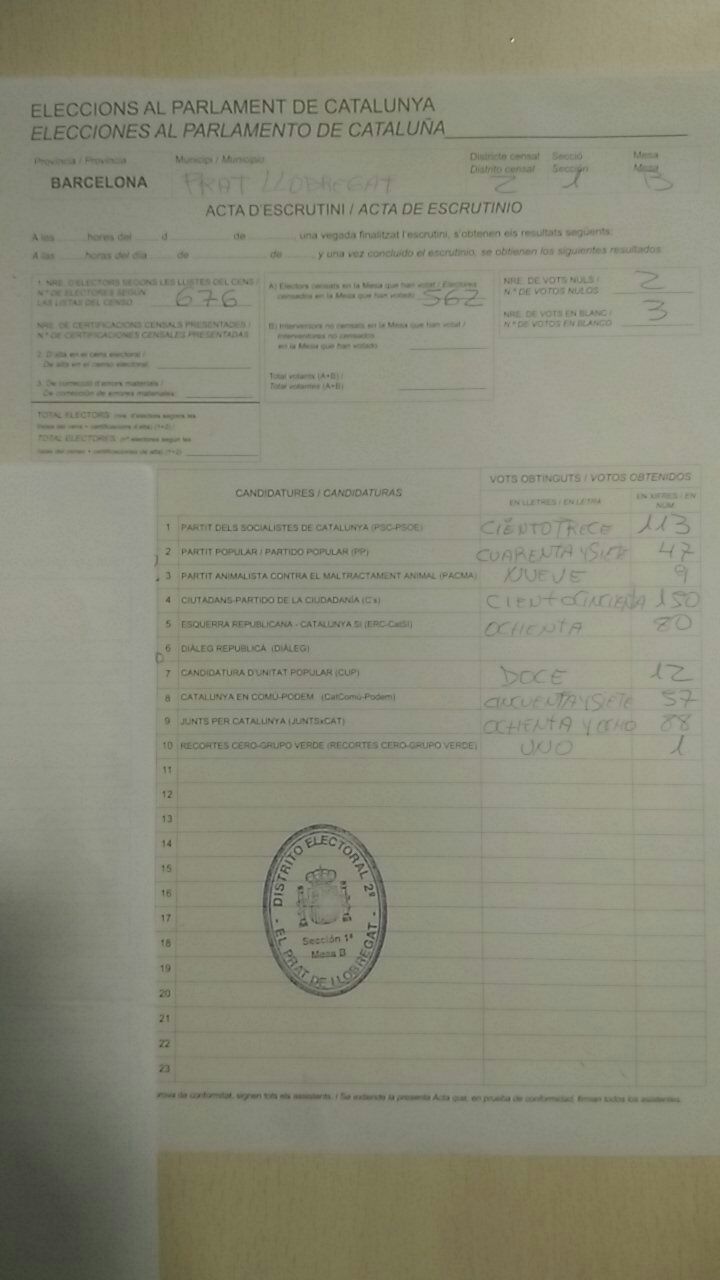 ELECCIONS AL PARLAMENT DE CATALUNYA
ELECCIONES AL PARLAMENTO DE CATALUÑA
Província / Provincia Municipi / Municipio Districte censal Secció Mesa
Distrito censal Sección Mesa
BARCELONA PRAT LLOBREGAT 2 1 B
ACTA D'ESCRUTINI / ACTA DE ESCRUTINIO
A les ........ hores del ........ d ........ de ........, una vegada finalitzat l'escrutini, s'obtenen els resultats següents:
A las ........ horas del día ........ de ........ de ........, y una vez concluido el escrutinio, se obtienen los siguientes resultados:
1. NRE. D'ELECTORS SEGONS LES LLISTES DEL CENS /
N.º DE ELECTORES SEGÚN
LAS LISTAS DEL CENSO 676
NRE. DE CERTIFICACIONS CENSALS PRESENTADES /
N.º DE CERTIFICACIONES CENSALES PRESENTADAS
2. D'alta en el cens electoral /
De alta en el censo electoral:
3. De correcció d'errors materials /
De corrección de errores materiales:
TOTAL ELECTORS (nre. d'electors segons les
llistes del cens + certificacions d'alta) (1+2) /
TOTAL ELECTORES (nº electores según las
listas del censo + certificaciones de alta) (1+2)
A) Electors censats en la Mesa que han votat / Electores
censados en la Mesa que han votado 562
B) Interventors no censats en la Mesa que han votat /
Interventores no censados
en la Mesa que han votado
Total votants (A+B) /
Total votantes (A+B)
NRE. DE VOTS NULS / 2
N.º DE VOTOS NULOS
NRE. DE VOTS EN BLANC / 3
N.º DE VOTOS EN BLANCO
CANDIDATURES / CANDIDATURAS VOTS OBTINGUTS / VOTOS OBTENIDOS
EN LLETRES / EN LETRA EN XIFRES / EN NÚM.
1 PARTIT DELS SOCIALISTES DE CATALUNYA (PSC-PSOE) CIENTOTRECE 113
2 PARTIT POPULAR / PARTIDO POPULAR (PP) CUARENTA YSIETE 47
3 PARTIT ANIMALISTA CONTRA EL MALTRACTAMENT ANIMAL (PACMA) NUEVE 9
4 CIUTADANS-PARTIDO DE LA CIUDADANÍA (C's) CIENTOCINCUENTA 150
5 ESQUERRA REPUBLICANA - CATALUNYA SÍ (ERC-CatSÍ) OCHENTA 80
6 DIÀLEG REPUBLICÀ (DIÀLEG)
7 CANDIDATURA D'UNITAT POPULAR (CUP) DOCE 12
8 CATALUNYA EN COMÚ-PODEM (CatComú-Podem) CINCUENTA YSIETE 57
9 JUNTS PER CATALUNYA (JUNTSxCAT) OCHENTA Y OCHO 88
10 RECORTES CERO-GRUPO VERDE (RECORTES CERO-GRUPO VERDE) UNO 1
11
12
13
14
15
16
17
18
19
20
21
22
23
DISTRITO ELECTORAL 2º
Sección 1ª
Mesa B
EL PRAT DE LLOBREGAT
prova de conformitat, signen tots els assistents. / Se extiende la presente Acta que, en prueba de conformidad, firman todos los asistentes.